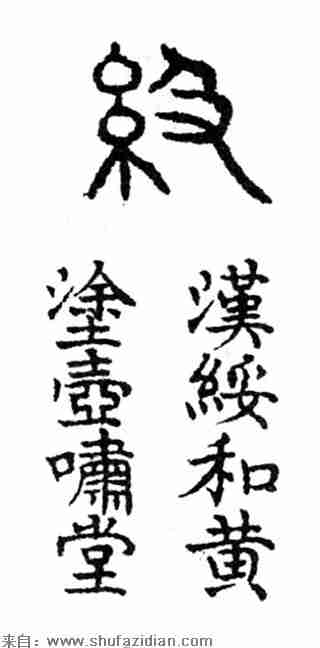 級
漢綏和黃
塗壺嘯堂
来自：www.shufazidian.com